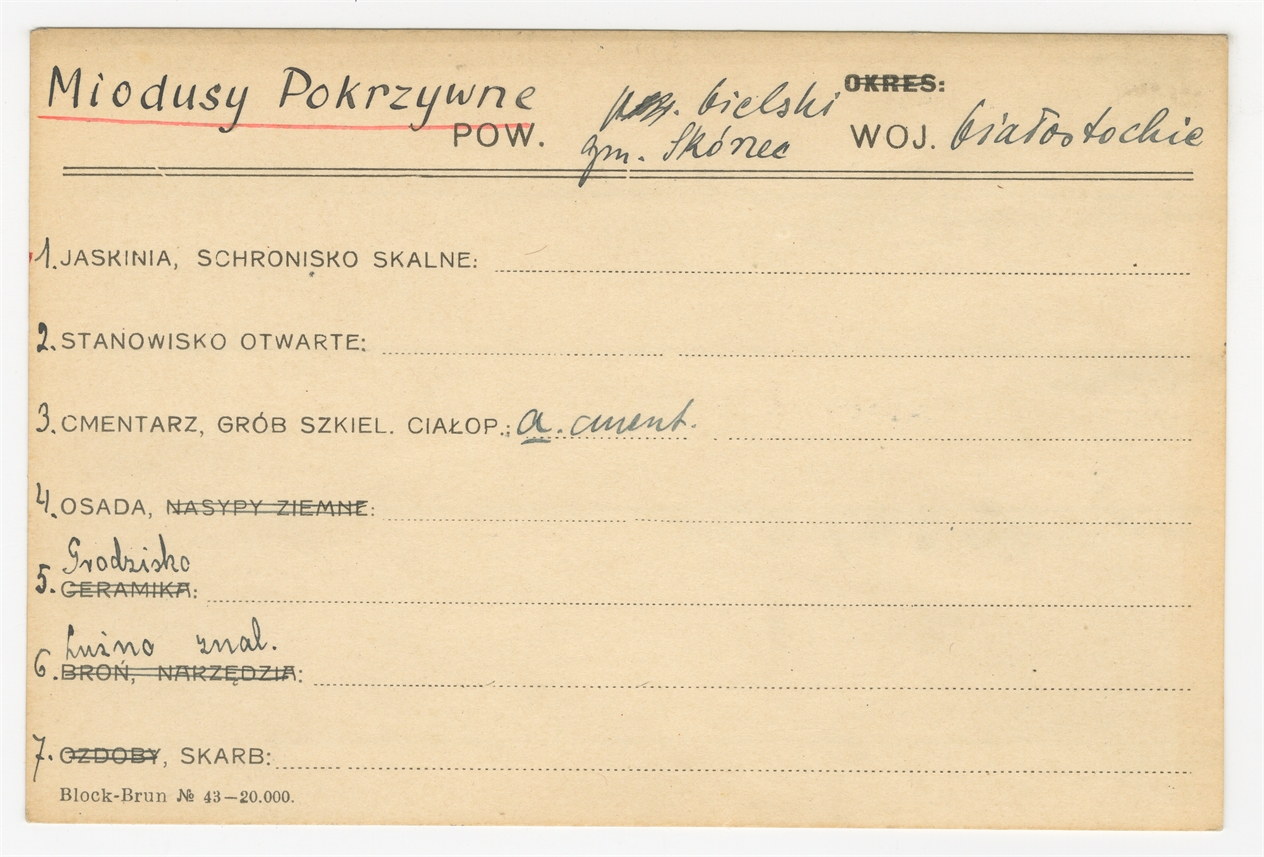 Miodusy Pokrzywne
OKRES:
POW. bielski
gm. Skórzec WOJ. białostockie
1. JASKINIA, SCHRONISKO SKALNE:
2. STANOWISKO OTWARTE:
3. CMENTARZ, GRÓB SZKIEL. CIAŁOP.: a. cment.
4. OSADA, NASYPY ZIEMNE:
Grodzisko
5. CERAMIKA:
Luźno znal.
6. BROŃ, NARZĘDZIA:
7. OZDOBY, SKARB:
Block-Brun № 43—20.000.